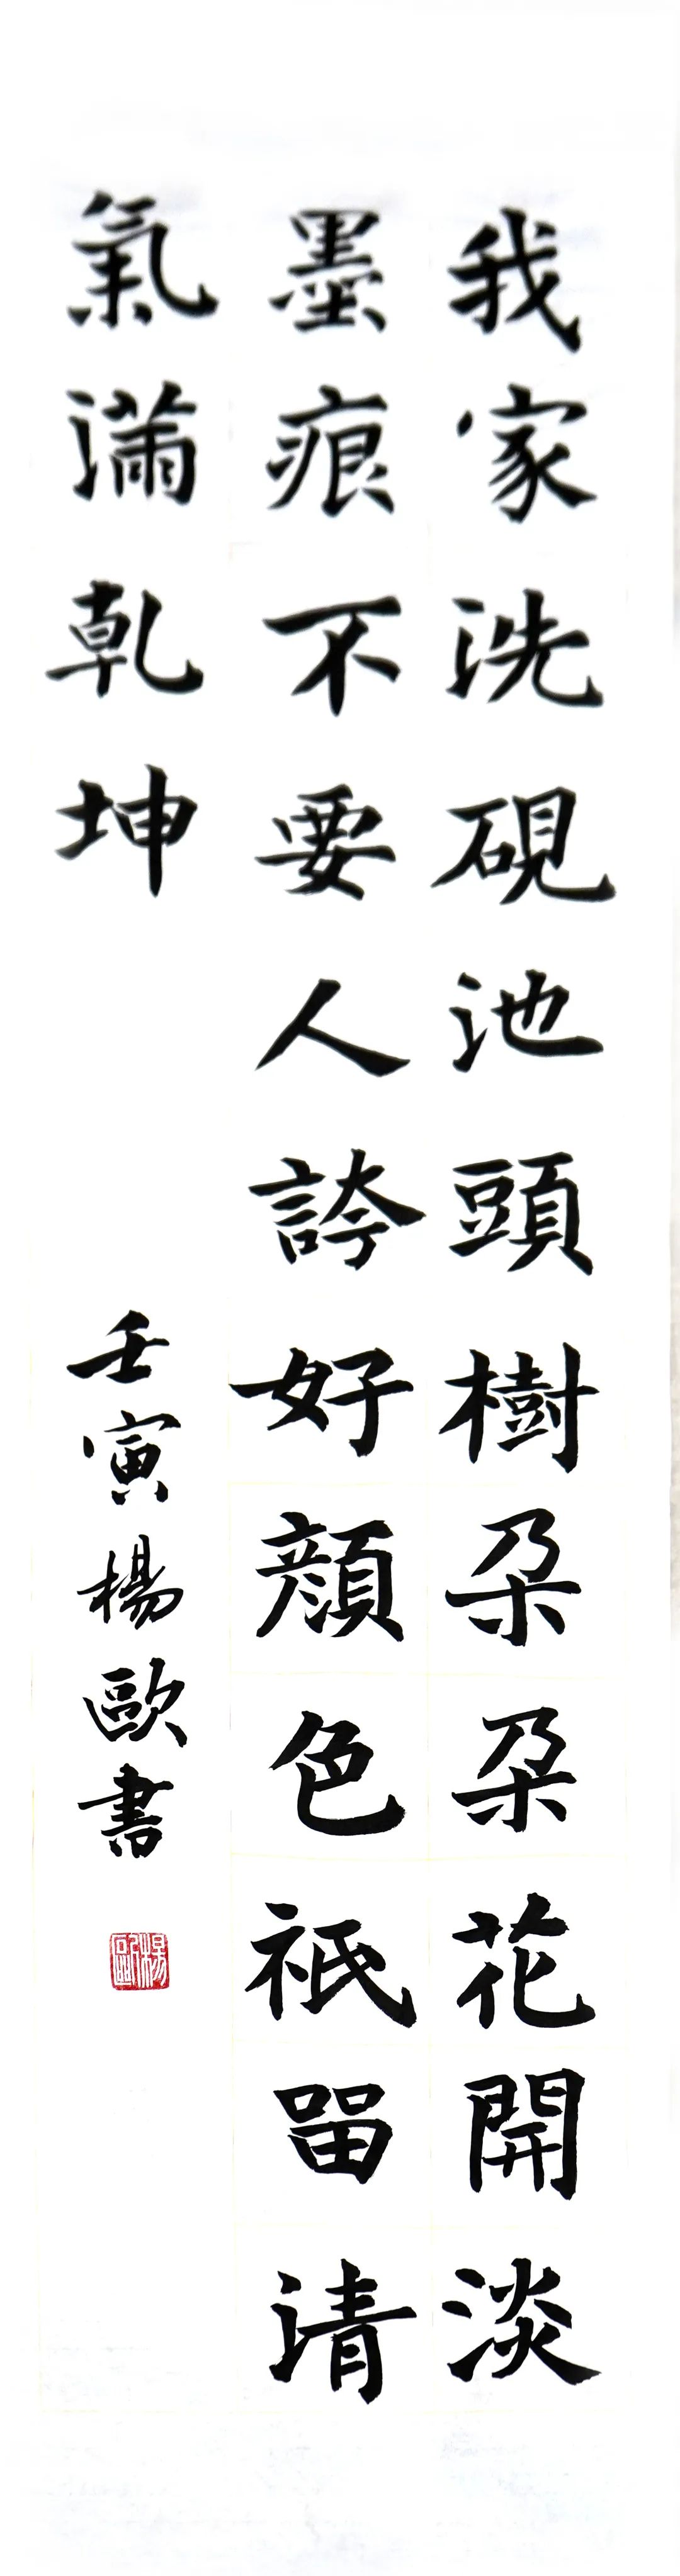 我家洗硯池頭樹朶朶花開淡
墨痕不要人誇好顔色祇畱清
氣滿乾坤
壬寅楊歐書
楊歐